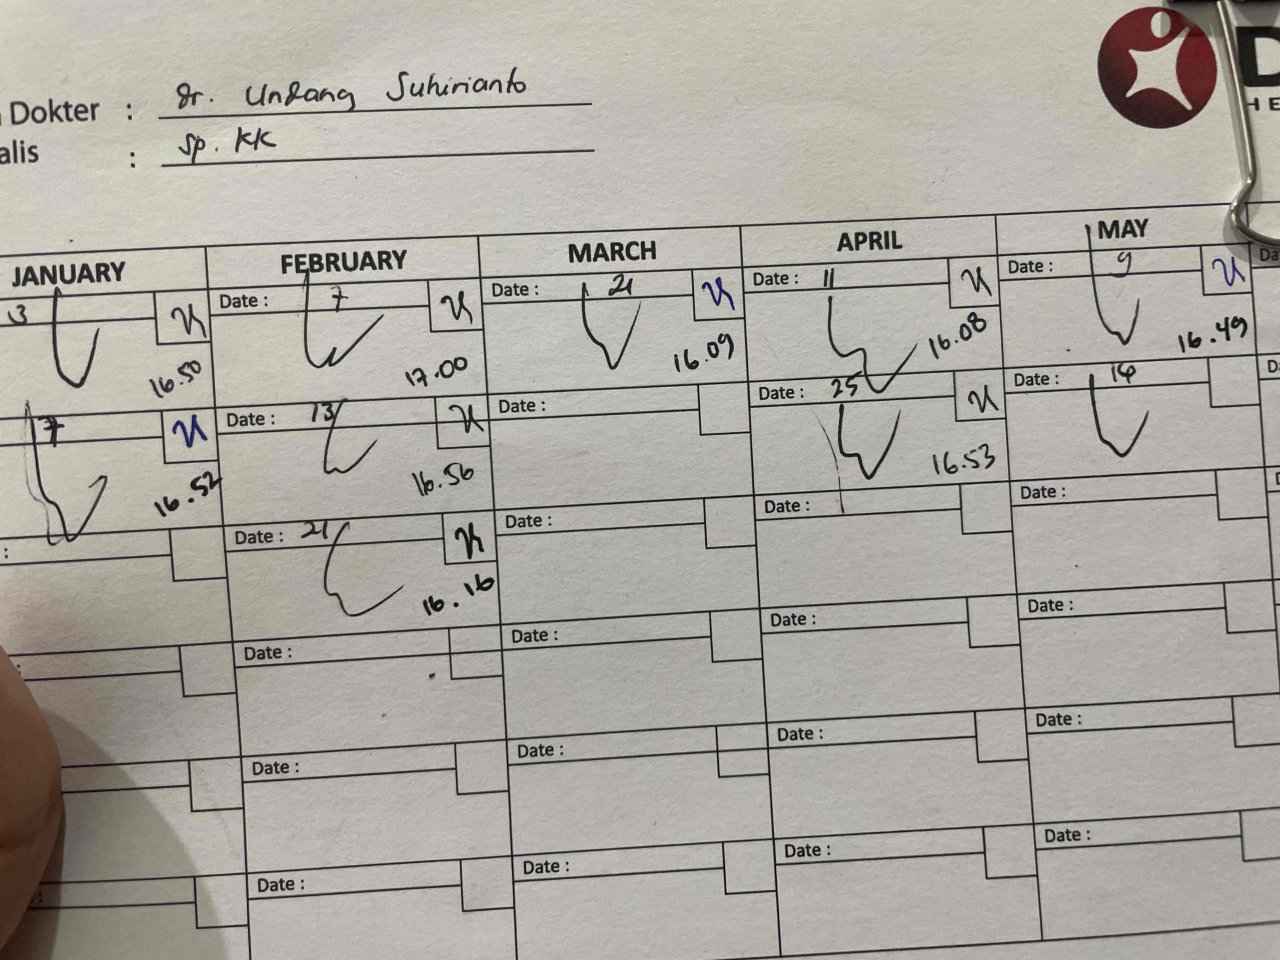 Dokter : dr. Undang Suhirianto
alis : Sp. KK
D
HE
JANUARY FEBRUARY MARCH APRIL MAY
3 Date : 7 Date : 21 Date : 11 Date : 9 Da
16.50 17.00 16.09 16.08 16.49
7 Date : 13 Date : Date : 25 Date : 14 D
16.52 16.56 16.53
: Date : 21 Date : Date : Date :
16.16
: Date : Date : Date : Date :
Date : Date : Date : Date :
: Date : Date : Date : Date :